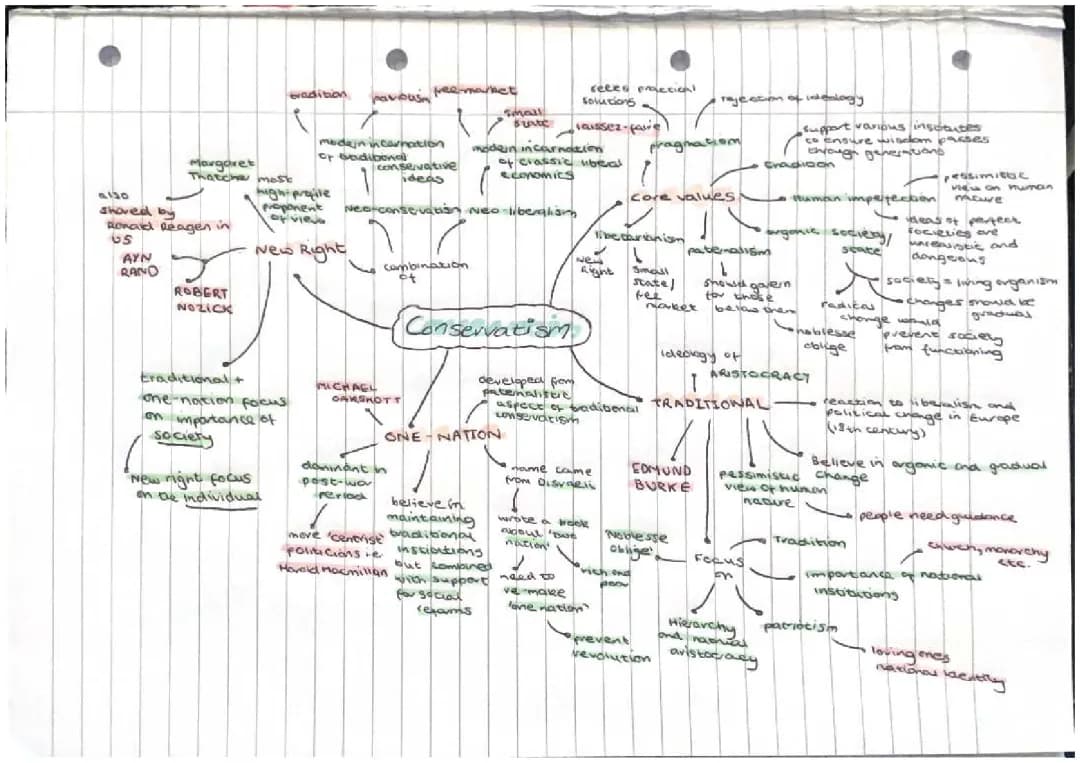 Conservatism
Core values
pragmatism
seeks practical
solutions
rejection of ideology
tradition
support various institutes
to ensure wisdom passes
through generations
Human imperfection
pessimistic
view on human
nature
ideas of perfect
societies are
unrealistic and
dangerous
organic society/
state
society = living organism
changes should be
gradual
radical
change would
prevent society
from functioning
paternalism
should govern
for those
below them
noblesse
oblige
libertarianism
New
Right
small
state/
free
market
TRADITIONAL
Ideology of
ARISTOCRACY
reaction to liberalism and
political change in Europe
(18th century)
Believe in organic and gradual
change
pessimistic
view of human
nature
people need guidance
EDMUND
BURKE
Focus
on
Tradition
importance of national
institutions
church, monarchy
etc.
patriotism
loving ones
national identity
Hierarchy
and natural
aristocracy
'Noblesse
oblige'
ONE-NATION
MICHAEL
OAKSHOTT
developed from
paternalistic
aspect of traditional
conservatism
name came
from Disraeli
wrote a book
about 'two
nation'
rich and
poor
need to
re-make
'one nation'
prevent
revolution
believe in
maintaining
traditional
institutions
but combined
with support
for social
reforms
dominant in
post-war
period
more 'centrist'
politicians i.e.
Harold Macmillan
New Right
Margaret
Thatcher most
high-profile
proponent
of view
also
shared by
Ronald Reagen in
US
AYN
RAND
ROBERT
NOZICK
combination
of
Neo-conservatism
modern incarnation
of traditional
conservative
ideas
tradition
Neo-liberalism
modern incarnation
of classic liberal
economics
free-market
small
state
laissez-faire
traditional +
one-nation focus
on importance of
society
New right focus
on the individual